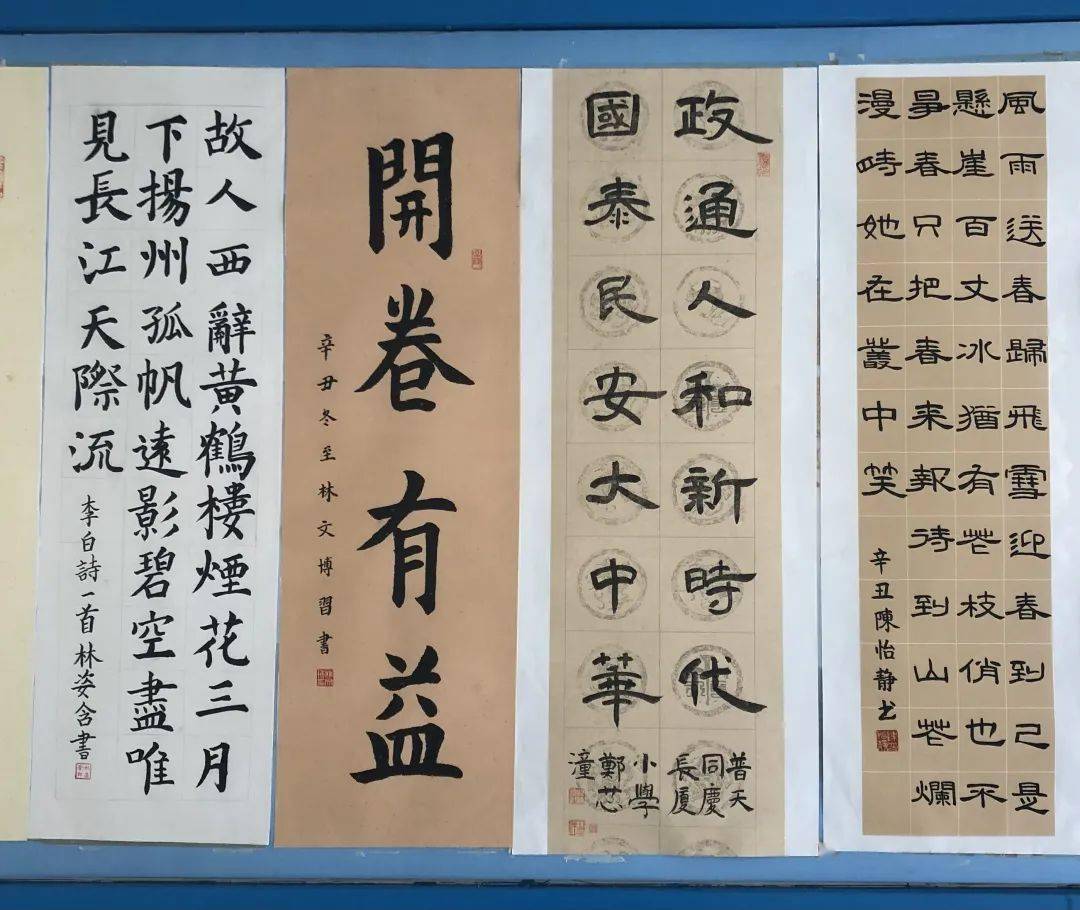 風雨送春歸飛雪迎春到已是
懸崖百丈冰猶有花枝俏也不
爭春只把春来報待到山花爛
漫時她在叢中笑
辛丑陳怡靜书
政通人和新時代
國泰民安大中華
普天
同慶
長厦
小學
鄭芯
潼
開卷有益
辛丑冬至林文博習書
故人西辭黄鶴樓煙花三月
下揚州孤帆遠影碧空盡唯
見長江天際流
李白詩一首林姿含書